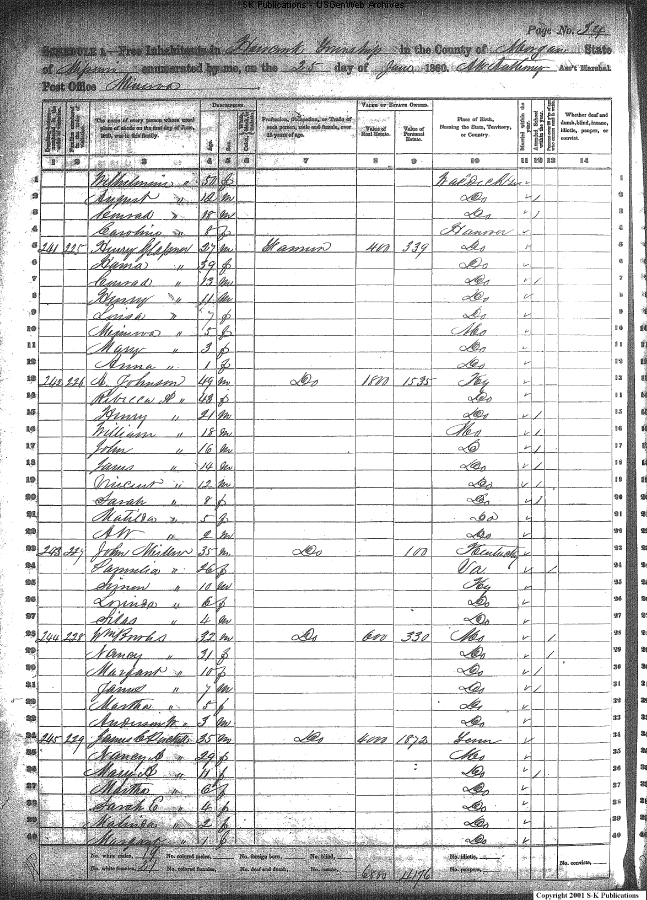 S-K Publications - USGenWeb Archives
Page No. 34
SCHEDULE 1.—Free Inhabitants in Township in the County of Morgan State
of enumerated by me, on the 25 day of June 1860. Ass't Marshal
Post Office Minerva
DESCRIPTION. VALUE OF ESTATE OWNED.
The name of every person whose usual place of abode on the first day of June, 1860, was in this family.
Age. Sex.
Profession, Occupation, or Trade of each person, male and female, over 15 years of age.
Value of Real Estate. Value of Personal Estate.
Place of Birth, Naming the State, Territory, or Country.
Married within the year. Attended School within the year.
Whether deaf and dumb, blind, insane, idiotic, pauper, or convict.
1 2 3 4 5 6 7 8 9 10 11 12 13 14
1 Wilhelmina " 50 f 1
2 August " 12 m Do 2
3 Conrad " 18 m Do 3
4 Caroline " 8 f Hanover 4
5 241 225 Henry 37 m Farmer 400 339 Do 5
6 " 39 f Do 6
7 Conrad " 13 m Do 7
8 Henry " 11 m Do 8
9 Louisa " 7 f Do 9
10 Minerva " 5 f Mo 10
11 Mary " 3 f Do 11
12 Anna " 1 f Do 12
13 242 226 A. Johnson 49 m Do 1800 1535 Ky 13
14 Rebecca A " 43 f Do 14
15 Henry " 21 m Do 15
16 William " 18 m Mo 16
17 John " 16 m Do 17
18 James " 14 m Do 18
19 Vincent " 12 m Do 19
20 Sarah " 8 f Do 20
21 Matilda " 5 f Do 21
22 A W " 2 m Do 22
23 243 227 John Miller 35 m Do 100 Kentucky 23
24 Pamelia " 26 f Va 24
25 Simon " 10 m Ky 25
26 Lorinda " 6 f Do 26
27 Silas " 4 m Do 27
28 244 228 Wm Bowles 32 m Do 600 330 Mo 28
29 Nancy " 31 f Do 29
30 Margaret " 10 f Do 30
31 James " 7 m Do 31
32 Martha " 5 f Do 32
33 Anderson W " 3 m Do 33
34 245 229 James C 35 m Do 4000 1872 Tenn 34
35 Nancy A " 29 f Mo 35
36 Mary A " 11 f Do 36
37 Martha " 6 f Do 37
38 Sarah E " 4 f Do 38
39 Malinda " 2 f Do 39
40 Margaret " 1 f Do 40
No. white males, 19 No. colored males, No. foreign born, No. blind, No. idiotic, No. convicts,
No. white females, 21 No. colored females, No. deaf and dumb, No. insane, 6800 4176 No. paupers,
Copyright 2001 S-K Publications